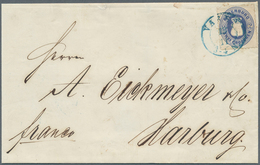 Herrn
A. Eickmeyer & Co.
franco
Harburg